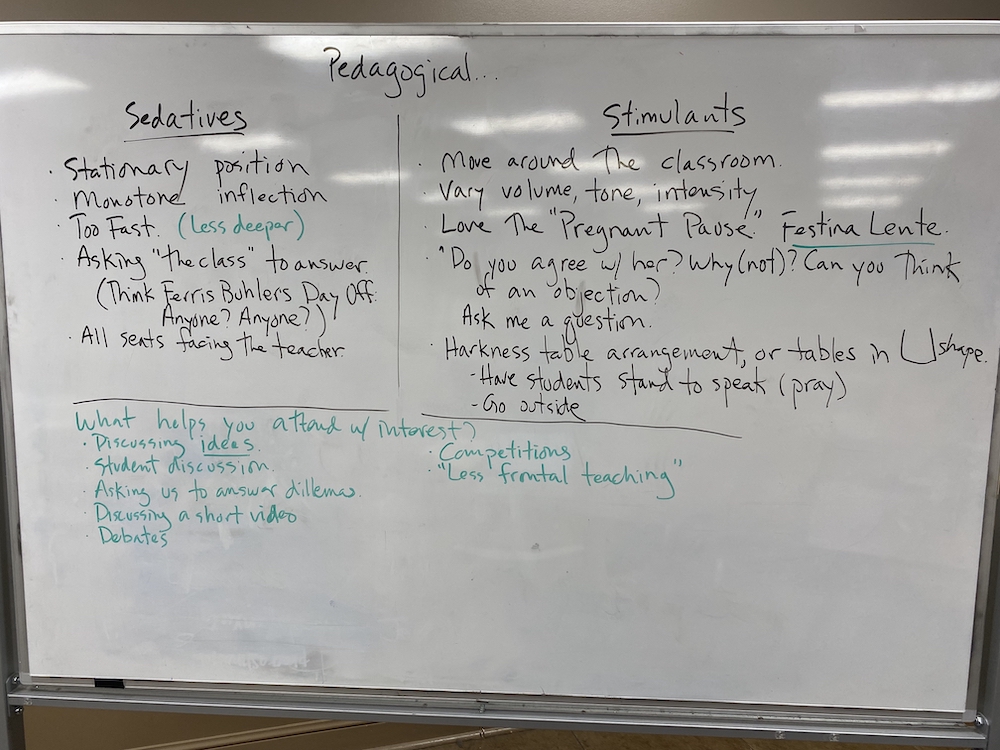 Pedagogical...
Sedatives
· Stationary position
· Monotone inflection
· Too Fast. (Less deeper)
· Asking "the class" to answer.
(Think Ferris Buhlers Day Off:
Anyone? Anyone?)
· All seats facing the teacher.
Stimulants
· Move around the classroom.
· Vary volume, tone, intensity
· Love The "Pregnant Pause." Festina Lente.
· "Do you agree w/ her? Why (not)? Can you Think
of an objection?
Ask me a question.
· Harkness table arrangement, or tables in U shape.
- Have students stand to speak (pray)
- Go outside
What helps you attend w/ interest?
· Discussing ideas.
· Student discussion.
· Asking us to answer dillemas.
· Discussing a short video
· Debates
· Competitions
· "Less frontal teaching"